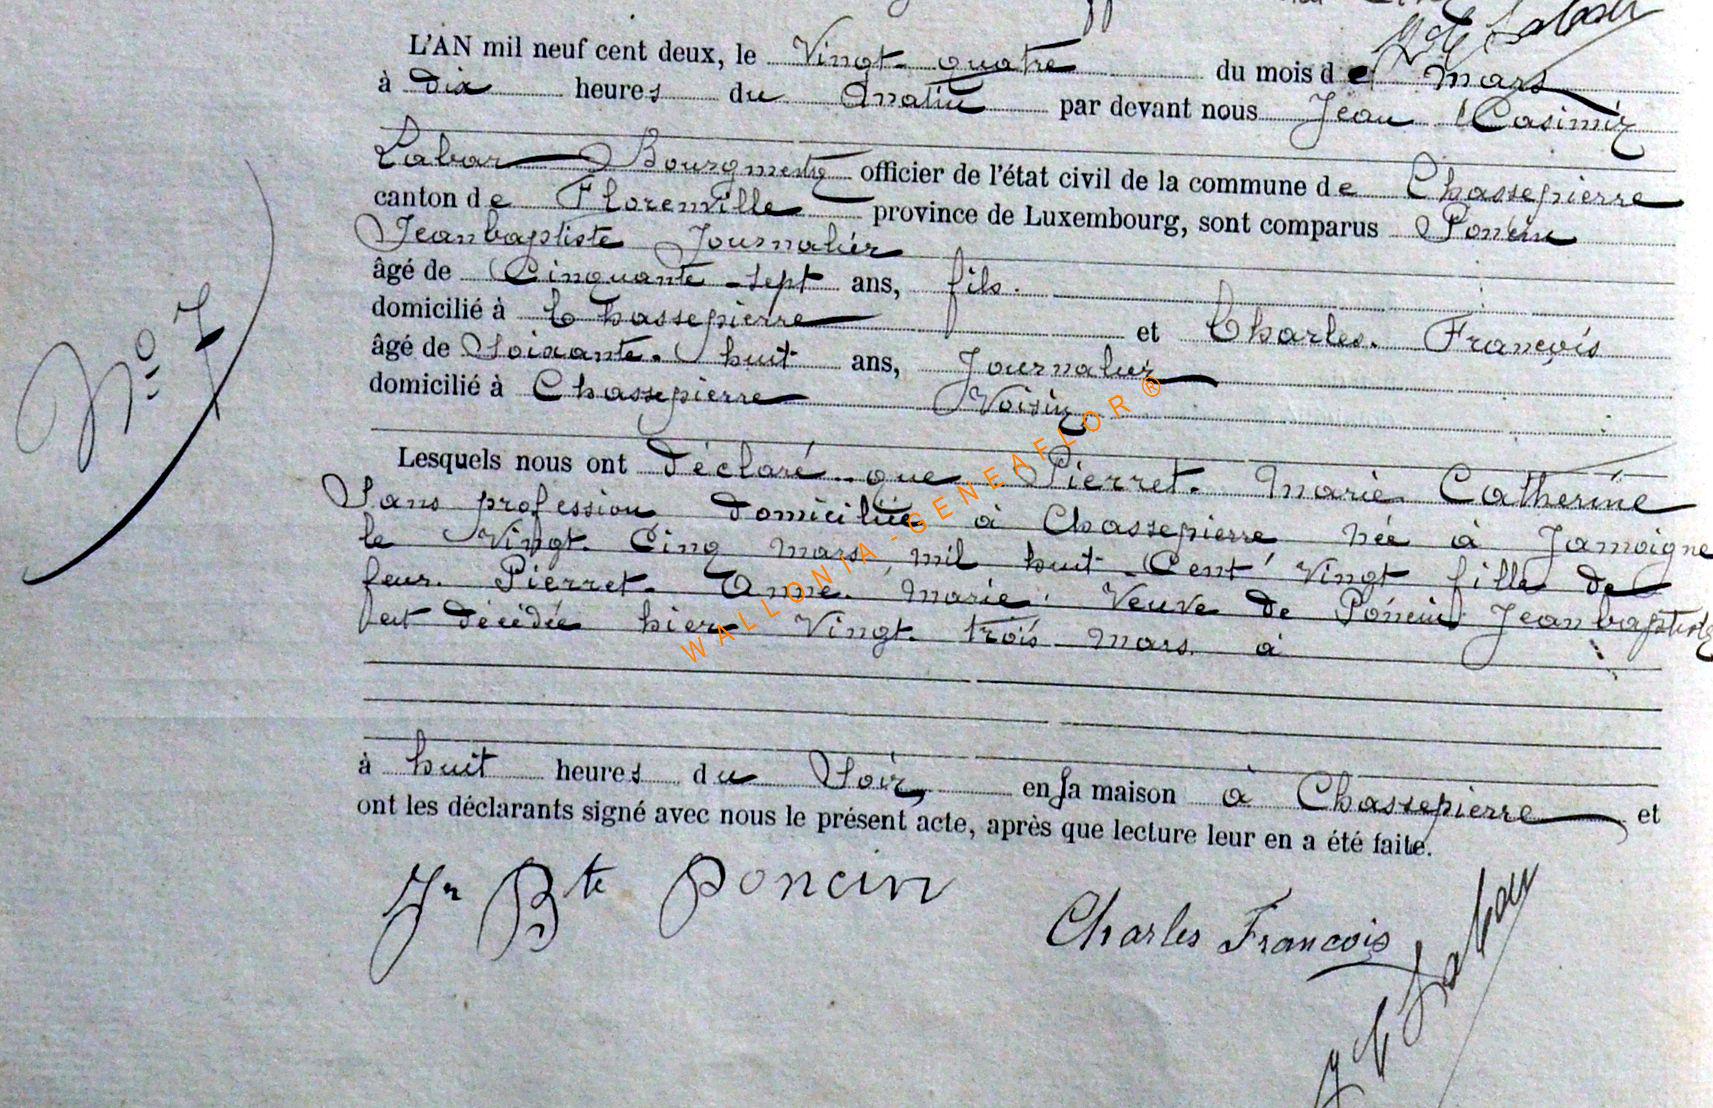 L'AN mil neuf cent deux, le Vingt quatre du mois de Mars
à Dix heures du Matin par devant nous Jean Casimir
Labar Bourgmestre officier de l'état civil de la commune de Chassepierre
canton de Florenville province de Luxembourg, sont comparus Poncin
Jeanbaptiste Journalier
âgé de Cinquante-sept ans, fils.
domicilié à Chassepierre et Charles. François
âgé de Soixante. huit ans, Journalier
domicilié à Chassepierre Voisin
Lesquels nous ont déclaré que Pierret. Marie Catherine
Sans profession domiciliée à Chassepierre née à Jamoigne
le Vingt. Cinq mars mil huit Cent Vingt fille de
feue. Pierret. Anne. Marie. Veuve de Poncin Jeanbaptiste
est décédée hier Vingt. trois mars. à
à huit heures du Soir en sa maison à Chassepierre et
ont les déclarants signé avec nous le présent acte, après que lecture leur en a été faite.
Jn Bte Poncin
Charles Francois
J C Labar
No 7
WALLONIA-GENEAFLOR ®